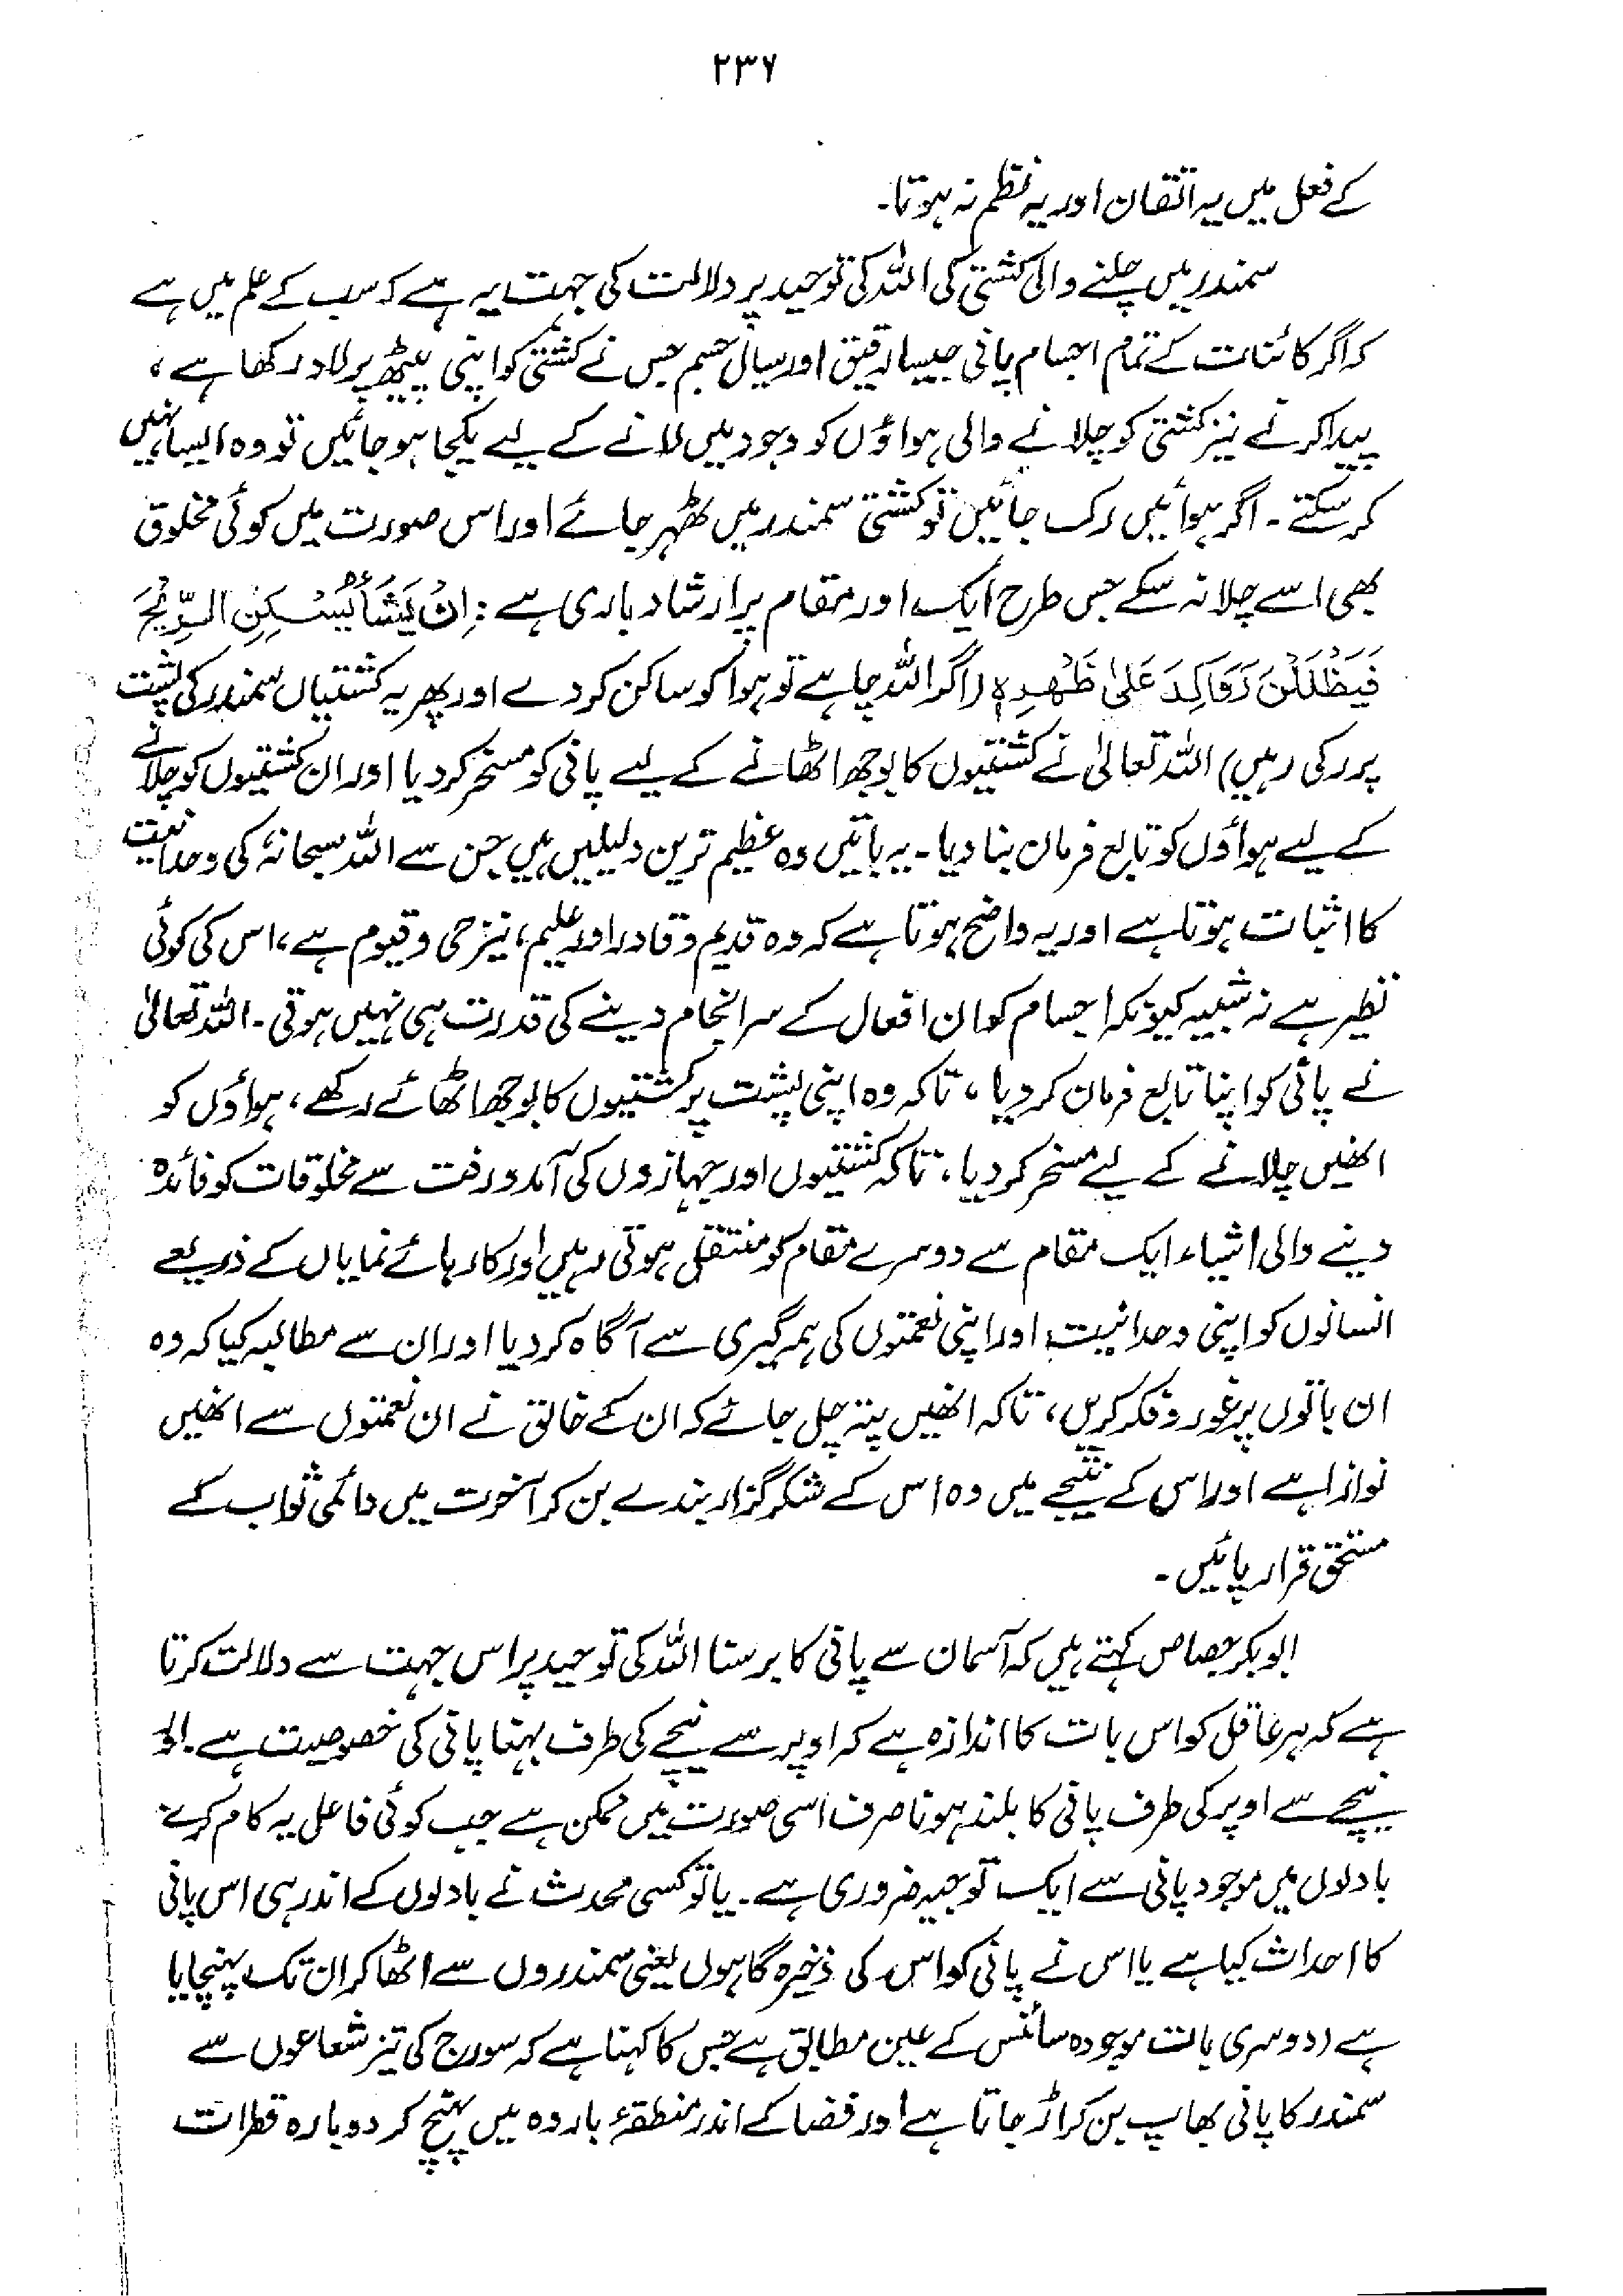 ۲۳۶
کے فعل میں یہ اتقان اور یہ نظم نہ ہوتا۔
سمندر میں چلنے والی کشتی کی اللہ کی توحید پر دلالت کی جہت یہ ہے کہ سب کے علم میں ہے
کہ اگر کائنات کے تمام اجسام پانی جیسا رقیق اور سیال جسم جس نے کشتی کو اپنی پیٹھ پر لاد رکھا ہے،
پیدا کرنے نیز کشتی کو چلانے والی ہواؤں کو وجود میں لانے کے لیے یکجا ہو جائیں تو وہ ایسا نہیں
کر سکتے۔ اگر ہوائیں رک جائیں تو کشتی سمندر میں ٹھہر جائے اور اس صورت میں کوئی مخلوق
بھی اسے چلا نہ سکے جس طرح ایک اور مقام پر ارشاد باری ہے : اِنْ يَّشَأْ يُسْكِنِ الرِّيْحَ
فَيَظْلَلْنَ رَوَاكِدَ عَلىٰ ظَهْرِهٖ (اگر اللہ چاہے تو ہوا کو ساکن کر دے اور پھر یہ کشتیاں سمندر کی پشت
پر رکی رہیں) اللہ تعالیٰ نے کشتیوں کا بوجھ اٹھانے کے لیے پانی کو مسخر کر دیا اور ان کشتیوں کو چلانے
کے لیے ہواؤں کو تابع فرمان بنا دیا۔ یہ باتیں وہ عظیم ترین دلیلیں ہیں جن سے اللہ سبحانہٗ کی وحدانیت
کا اثبات ہوتا ہے اور یہ واضح ہوتا ہے کہ وہ قدیم و قادر اور علیم، نیز حی و قیوم ہے، اس کی کوئی
نظیر ہے نہ شبیہ کیونکہ اجسام کو ان افعال کے سرانجام دینے کی قدرت ہی نہیں ہوتی۔ اللہ تعالیٰ
نے پانی کو اپنا تابع فرمان کر دیا، تاکہ وہ اپنی پشت پر کشتیوں کا بوجھ اٹھائے رکھے، ہواؤں کو
انھیں چلانے کے لیے مسخر کر دیا، تاکہ کشتیوں اور جہازوں کی آمد و رفت سے مخلوقات کو فائدہ
دینے والی اشیاء ایک مقام سے دوسرے مقام کو منتقل ہوتی رہیں اور کارہائے نمایاں کے ذریعے
انسانوں کو اپنی وحدانیت اور اپنی نعمتوں کی ہمہ گیری سے آگاہ کر دیا اور ان سے مطالبہ کیا کہ وہ
ان باتوں پر غور و فکر کریں، تاکہ انھیں پتہ چل جائے کہ ان کے خالق نے ان نعمتوں سے انھیں
نوازا ہے اور اس کے نتیجے میں وہ اس کے شکر گزار بندے بن کر آخرت میں دائمی ثواب کے
مستحق قرار پائیں۔
ابوبکر جصاص کہتے ہیں کہ آسمان سے پانی کا برسنا اللہ کی توحید پر اس جہت سے دلالت کرتا
ہے کہ ہر عاقل کو اس بات کا اندازہ ہے کہ اوپر سے نیچے کی طرف بہنا پانی کی خصوصیت ہے۔ اور
نیچے سے اوپر کی طرف پانی کا بلند ہونا صرف اسی صورت میں ممکن ہے جب کوئی فاعل یہ کام کرے
بادلوں میں موجود پانی سے ایک توجیہ ضروری ہے۔ یا تو کسی محدث نے بادلوں کے اندر ہی اس پانی
کا احداث کیا ہے یا اس نے پانی کو اس کی ذخیرہ گاہوں یعنی سمندروں سے اٹھا کر ان تک پہنچایا
ہے (دوسری بات موجودہ سائنس کے عین مطابق ہے جس کا کہنا ہے کہ سورج کی تیز شعاعوں سے
سمندر کا پانی بھاپ بن کر اڑ جاتا ہے اور فضا کے اندر منطقۂ باردہ میں پہنچ کر دوبارہ قطرات